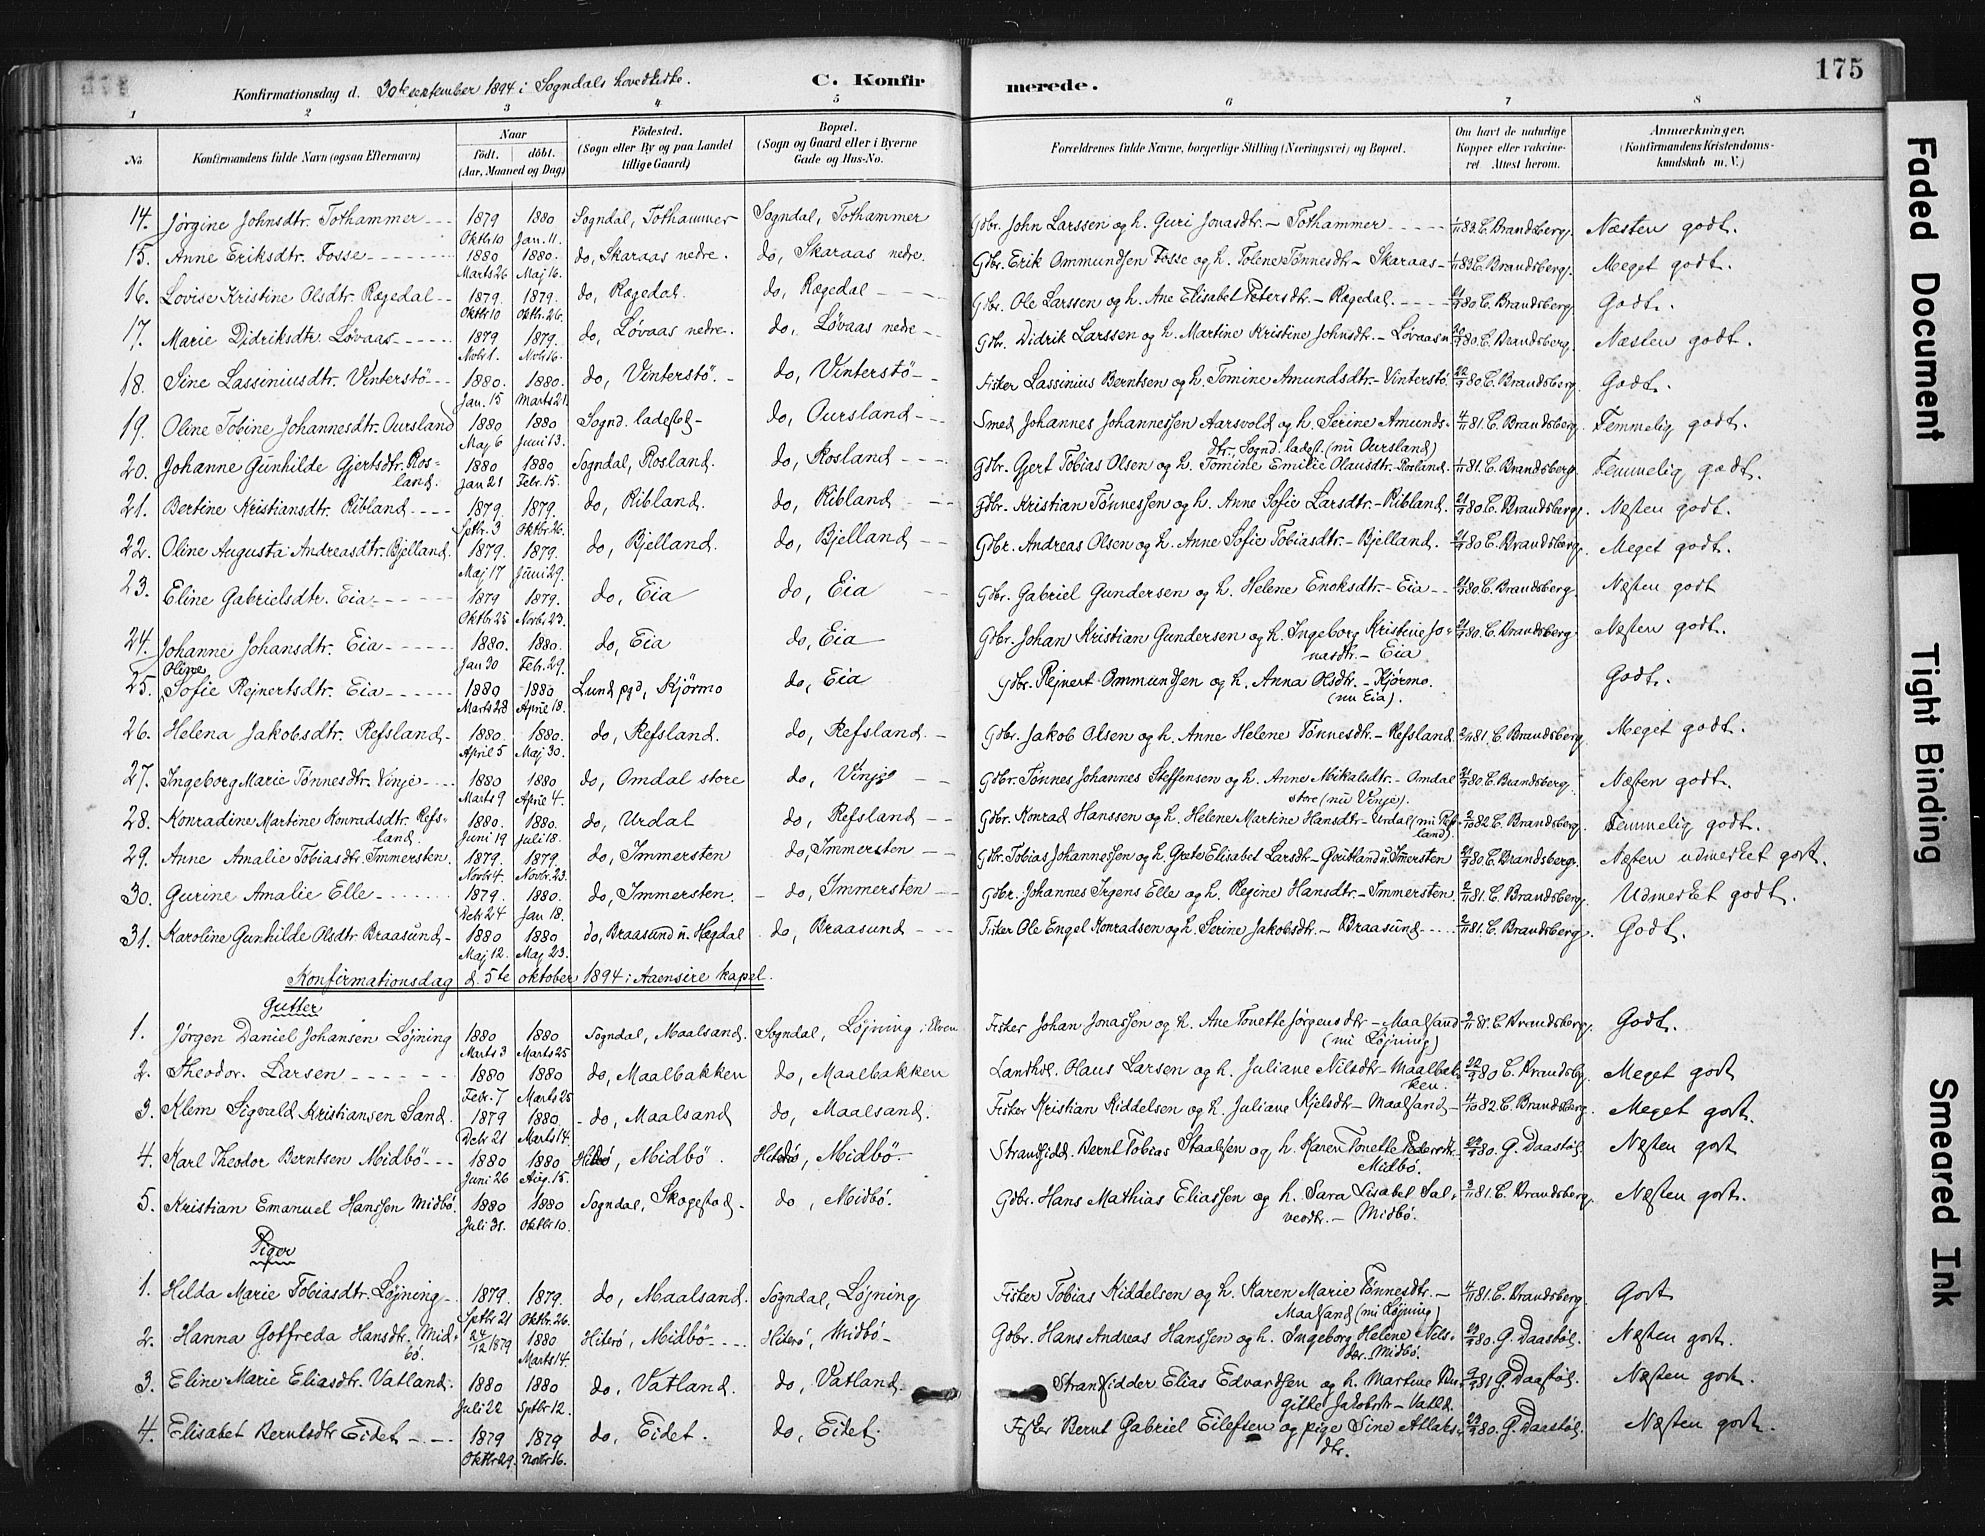 175
Konfirmationsdag d. 30te september 1894 i Sogndals hovedkirke.
C. Konfirmerede.
1 2 3 4 5 6 7 8
No
Konfirmandens fulde Navn (ogsaa Efternavn)
Naar
født. døbt.
(Aar, Maaned og Dag)
Fødested.
(Sogn eller By og paa Landet tillige Gaard)
Bopæl.
(Sogn og Gaard eller i Byerne Gade og Hus-No.
Forældrenes fulde Navne, borgerlige Stilling (Næringsvei) og Bopæl.
Om havt de naturlige Kopper eller vaccineret. Attest herom.
Anmærkninger.
(Konfirmandens Kristendomskundskab m. V.)
14. Jørgine Johnsdtr. Tothammer 1879 Oktbr 10 1880 Jan. 11. Sogndal, Tothammer Sogndal, Tothammer Gdbr. John Larssen og h. Guri Jonasdtr. – Tothammer 1/11 83 C. Brandsberg. Næsten godt.
15. Anne Eriksdtr. Fosse 1880 Marts 26 1880. Maj 16. do, Skaraas nedre. do, Skaraas nedre. Gdbr. Erik Ommundsen Fosse og h. Tolene Tønnesdtr – Skaraas – 1/11 83 C. Brandsberg. Meget godt.
16. Lovise Kristine Olsdtr. Rægedal 1879. Oktbr 10 1879. Oktbr. 26. do, Rægedal. do, Rægedal Gdbr. Ole Larssen og h. Ane Elisabet Petersdtr. – Rægedal. 80 C. Brandsberg. Godt.
17. Marie Didriksdtr. Løvaas 1879 Novbr 1. 1879. Novbr 16. do, Løvaas nedre. do, Løvaas nedre Gdbr. Didrik Larssen og h. Martine Kristine Johnsdtr. – Løvaas n. 80 C. Brandsberg. Næsten godt.
18. Sine Lassiniusdtr. Vinterstø 1880. Jan. 15 1880. Marts 21. do, Vinterstø. do, Vinterstø Fisker Lassinius Berntsen og h. Tomine Amundsdtr. – Vinterstø. 22/9 80 C. Brandsberg. Godt.
19. Oline Tobine Johannesdtr. Oursland 1880 Maj 6 1880 Juni 13. Sognd. ladested – do, Oursland Smed Johannes Johannessen Aarsvold og h. Serine Amundsdtr, Sognd. ladest. (nu Oursland) 4/11 81. C. Brandsberg. Temmelig godt.
20. Johanne Gunhilde Gjertsdtr. Rosland. 1880 Jan 21 1880 Febr. 15. Sogndal, Rosland. do, Rosland Gdbr. Gjert Tobias Olsen og h. Tomine Emilie Olausdtr. – Rosland. 1/11 81. C. Brandsberg. Temmelig godt.
21. Bertine Kristiansdtr. Ribland 1879. Sptbr. 3 1879. Oktbr. 26. do, Ribland. do, Ribland Gdbr. Kristian Tønnessen og h. Anne Sofie Larsdtr. – Ribland. 80 C. Brandsberg. Næsten godt.
22. Oline Augusta Andreasdtr. Bjelland 1879. Maj 17 1879. Juni 29. do, Bjelland. do, Bjelland Gdbr. Andreas Olsen og h. Anne Sofie Tobiasdtr. – Bjelland. 80 C. Brandsberg. Meget godt.
23. Eline Gabrielsdtr. Eia 1879 Oktbr 25 1879. Novbr. 23. do, Eia do, Eia Gdbr. Gabriel Gundersen og h. Helene Enoksdtr. – Eia 80. C. Brandsberg. Næsten godt
24. Johanne Johansdtr. Eia 1880. Jan 20 1880. Febr. 29. do, Eia do, Eia Gdbr. Johan Kristian Gundersen og h. Ingeborg Kristine Jonasdtr. – Eia 80. C. Brandsberg Næsten godt.
25. Oline Sofie Rejnertsdtr. Eia 1880 Marts 28 1880 April 18. Lund pgd, Kjörmo do, Eia Gdbr. Rejnert Ommundsen og h. Anna Olsdtr. – Kjörmo. (nu Eia). Godt.
26. Helena Jakobsdtr. Refsland 1880. April 5 1880. Maj 30. do, Refsland. do, Refsland. Gdbr. Jakob Olsen og h. Anne Helene Tønnesdtr. – Refsland 2/11 81. C. Brandsberg. Meget godt.
27. Ingeborg Marie Tønnesdtr. Vinje 1880 Marts 9 1880 April 4. do, Omdal store do, Vinje Gdbr. Tønnes Johannes Steffensen og h. Anne Mikalsdtr. – Omdal store (nu Vinje). 80. C. Brandsberg. Næsten godt.
28. Konradine Martine Konradsdtr. Refsland. 1880. Juni 19 1880. Juli 18. do, Urdal do, Refsland Gdbr. Konrad Hanssen og h. Helene Martine Hansdtr – Urdal (nu Refsland). 2/10 82 C. Brandsberg. Temmelig godt.
29. Anne Amalie Tobiasdtr. Immersten. 1879. Novbr 4. 1879. Novbr. 23. do, Immersten do, Immersten Gdbr. Tobias Johannessen og h. Grete Elisabet Larsdtr – Immersten 80 C. Brandsberg. Næsten udmerket godt.
30. Gurine Amalie Elle 1879. Debr 24 1880. Jan 18. do, Immersten. do, Immersten Gdbr. Johannes Irgens Elle og h. Regine Hansdtr. – Immersten 2/11 81. C. Brandsberg. Udmerket godt.
31. Karoline Gunhilde Olsdtr. Braasund 1880 Maj 12. 1880 Maj 23. do, Braasund u. Hægdal do, Braasund Fisker Ole Engel Konradsen og h. Serine Jakobsdtr. – Braasund 2/11 81. C. Brandsberg. Godt.
Konfirmationsdag d. 5te oktober 1894 i Aaensire kapel.
Gutter
1. Jørgen Daniel Johansen Løjning 1880 Marts 3 1880 Marts 25 Sogndal, Maalsand. Sogndal, Løjning i Elven Fisker Johan Jonassen og h. Ane Tonette Jørgensdtr – Maalsand (nu Løjning) 81. C. Brandsberg. Godt.
2. Theodor Larsen 1880 Febr. 7 1880 Marts 25 do, Maalbakken do, Maalbakken Landhdl. Olaus Larsen og h. Juliane Nilsdtr – Maalbakken. 22/9 80 C. Brandsbg. Meget godt
3. Klem Sigvald Kristiansen Sand. 1879 Debr 21 1880. Marts 14. do, Maalsand do, Maalsand. Fisker Kristian Kiddelsen og h. Juliane Kjelsdtr – Maalsand – 4/10 82. C. Brandsberg. Meget godt.
4. Karl Theodor Berntsen Midbö 1880 Juni 26 1880 Aug. 15. Hiterö, Midbö. Hiterö, Midbö. Strandsidd. Bernt Tobias Staalsen og h. Karen Tonette Pedersdtr. – Midbö. 80. G. Daastøl. Næsten godt
5. Kristian Emanuel Hanssen Midbö. 1880 Juli 31. 1880 Oktbr 10. Sogndal, Skogestad – do, Midbö. Gdbr. Hans Mathias Eliassen og h. Sara Lisabet Salveodtr. – Midbö. 81. C. Brandsberg. Næsten godt.
Piger
1. Hilda Marie Tobiasdtr. Løjning 1879. Sptbr 21 1879. Oktbr. 26. do, Maalsand. Sogndal, Løjning Fisker Tobias Kiddelsen og h. Karen Marie Tønnesdtr. – Maalsand (nu Løjning) 4/11 81. C. Brandsberg. Godt
2. Hanna Gotfreda Hansdtr. Midbö. 24/12 1879 1880 Marts 14. Hiterö, Midbö Hiterö, Midbö – Gdbr. Hans Andreas Hanssen og h. Ingeborg Helene Nilsdtr. – Midbö. 80. G. Daastøl. Næsten godt.
3. Eline Marie Eliasdtr. Vatland. 1880 Juli 22 1880 Sptbr 12. do, Vatland. do, Vatland Strandsidder Elias Edvardsen og h. Martine Birgitte Jakobsdtr – Vatld. 81 G. Daastøl. Næsten godt.
4. Elisabet Berntsdtr Eidet 1879 Oktbr 29. 1879 Novbr 16. do, Eidet. do, Eidet. Fisker Bernt Gabriel Eilefsen og pige Sine Atlaksdtr. 80. G. Daastøl. Næsten godt.
Faded Document
Tight Binding
Smeared Ink